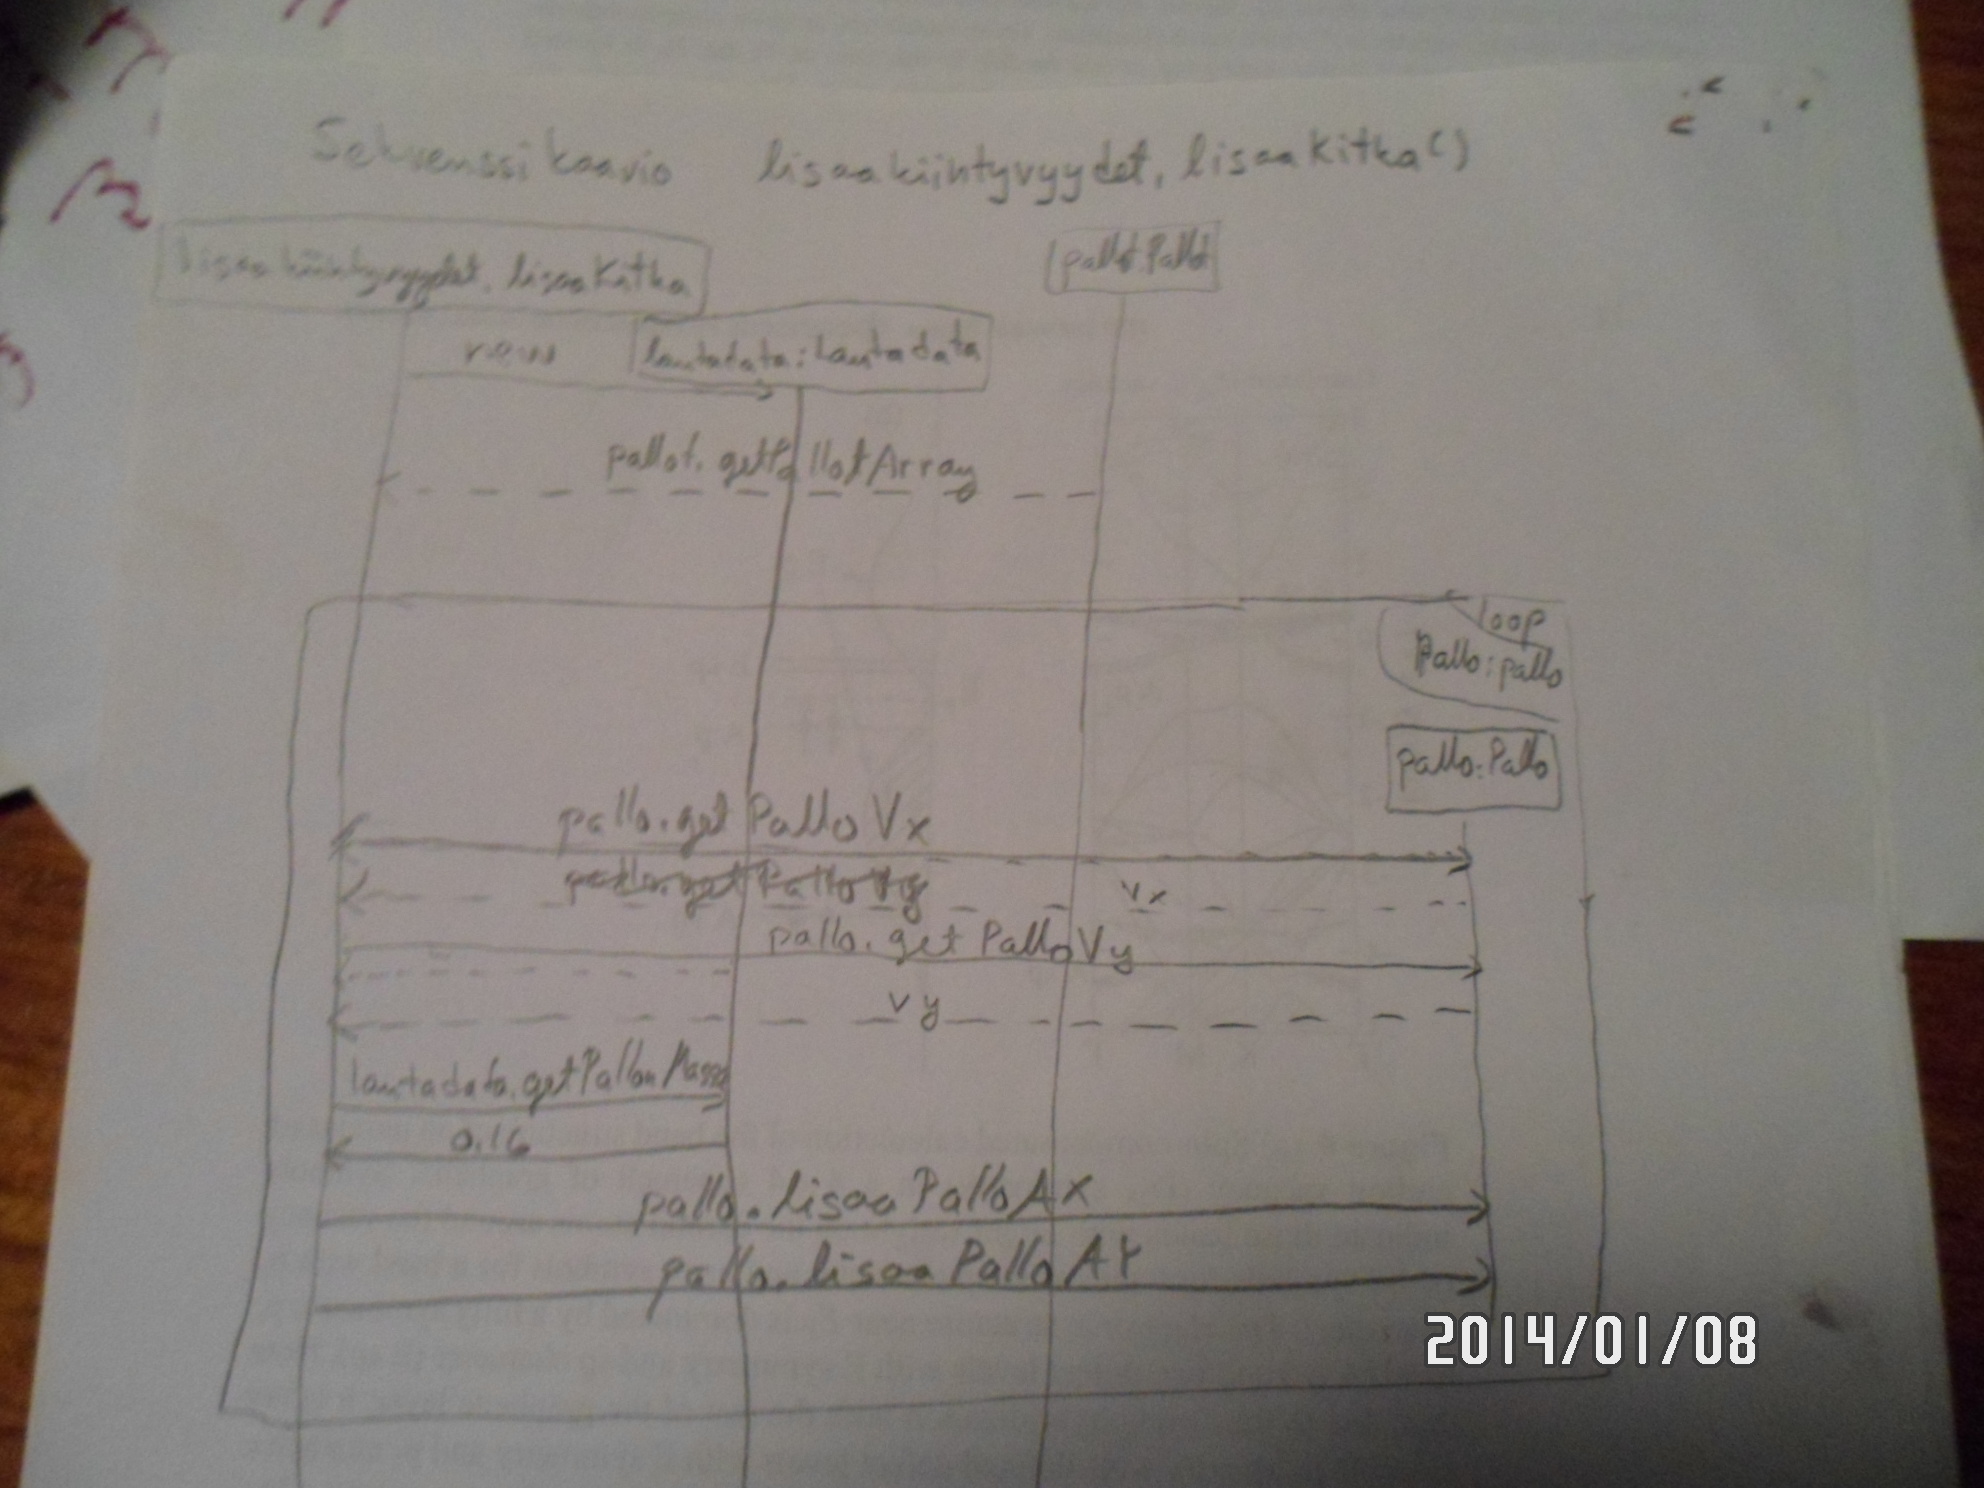 Sekvenssikaavio lisaakiihtyvyydet, lisaaKitka()
lisaakiihtyvyydet. lisaaKitka
pallot:Pallot
new
lautadata:Lautadata
pallot.getPallotArray
loop
Pallo:pallo
pallo:Pallo
pallo.getPalloVx
pallo.getPalloVy
vx
pallo.getPalloVy
vy
lautadata.getPallonMassa
0.16
pallo.lisaaPalloAX
pallo.lisaaPalloAY
2014/01/08